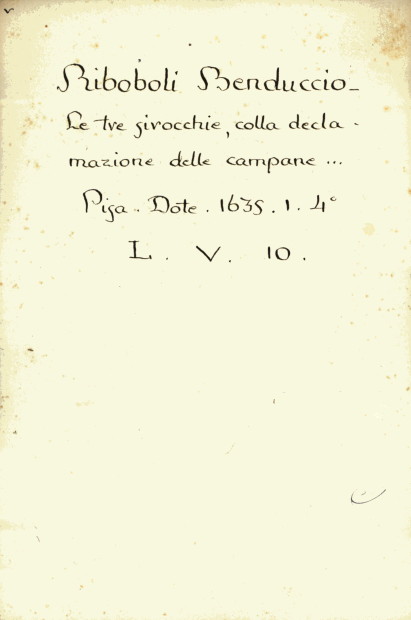 Riboboli Benduccio_
Le tre sirocchie, colla decla-
mazione delle campane ...
Pisa. Dote. 1635. 1. 4°
L. V. 10.